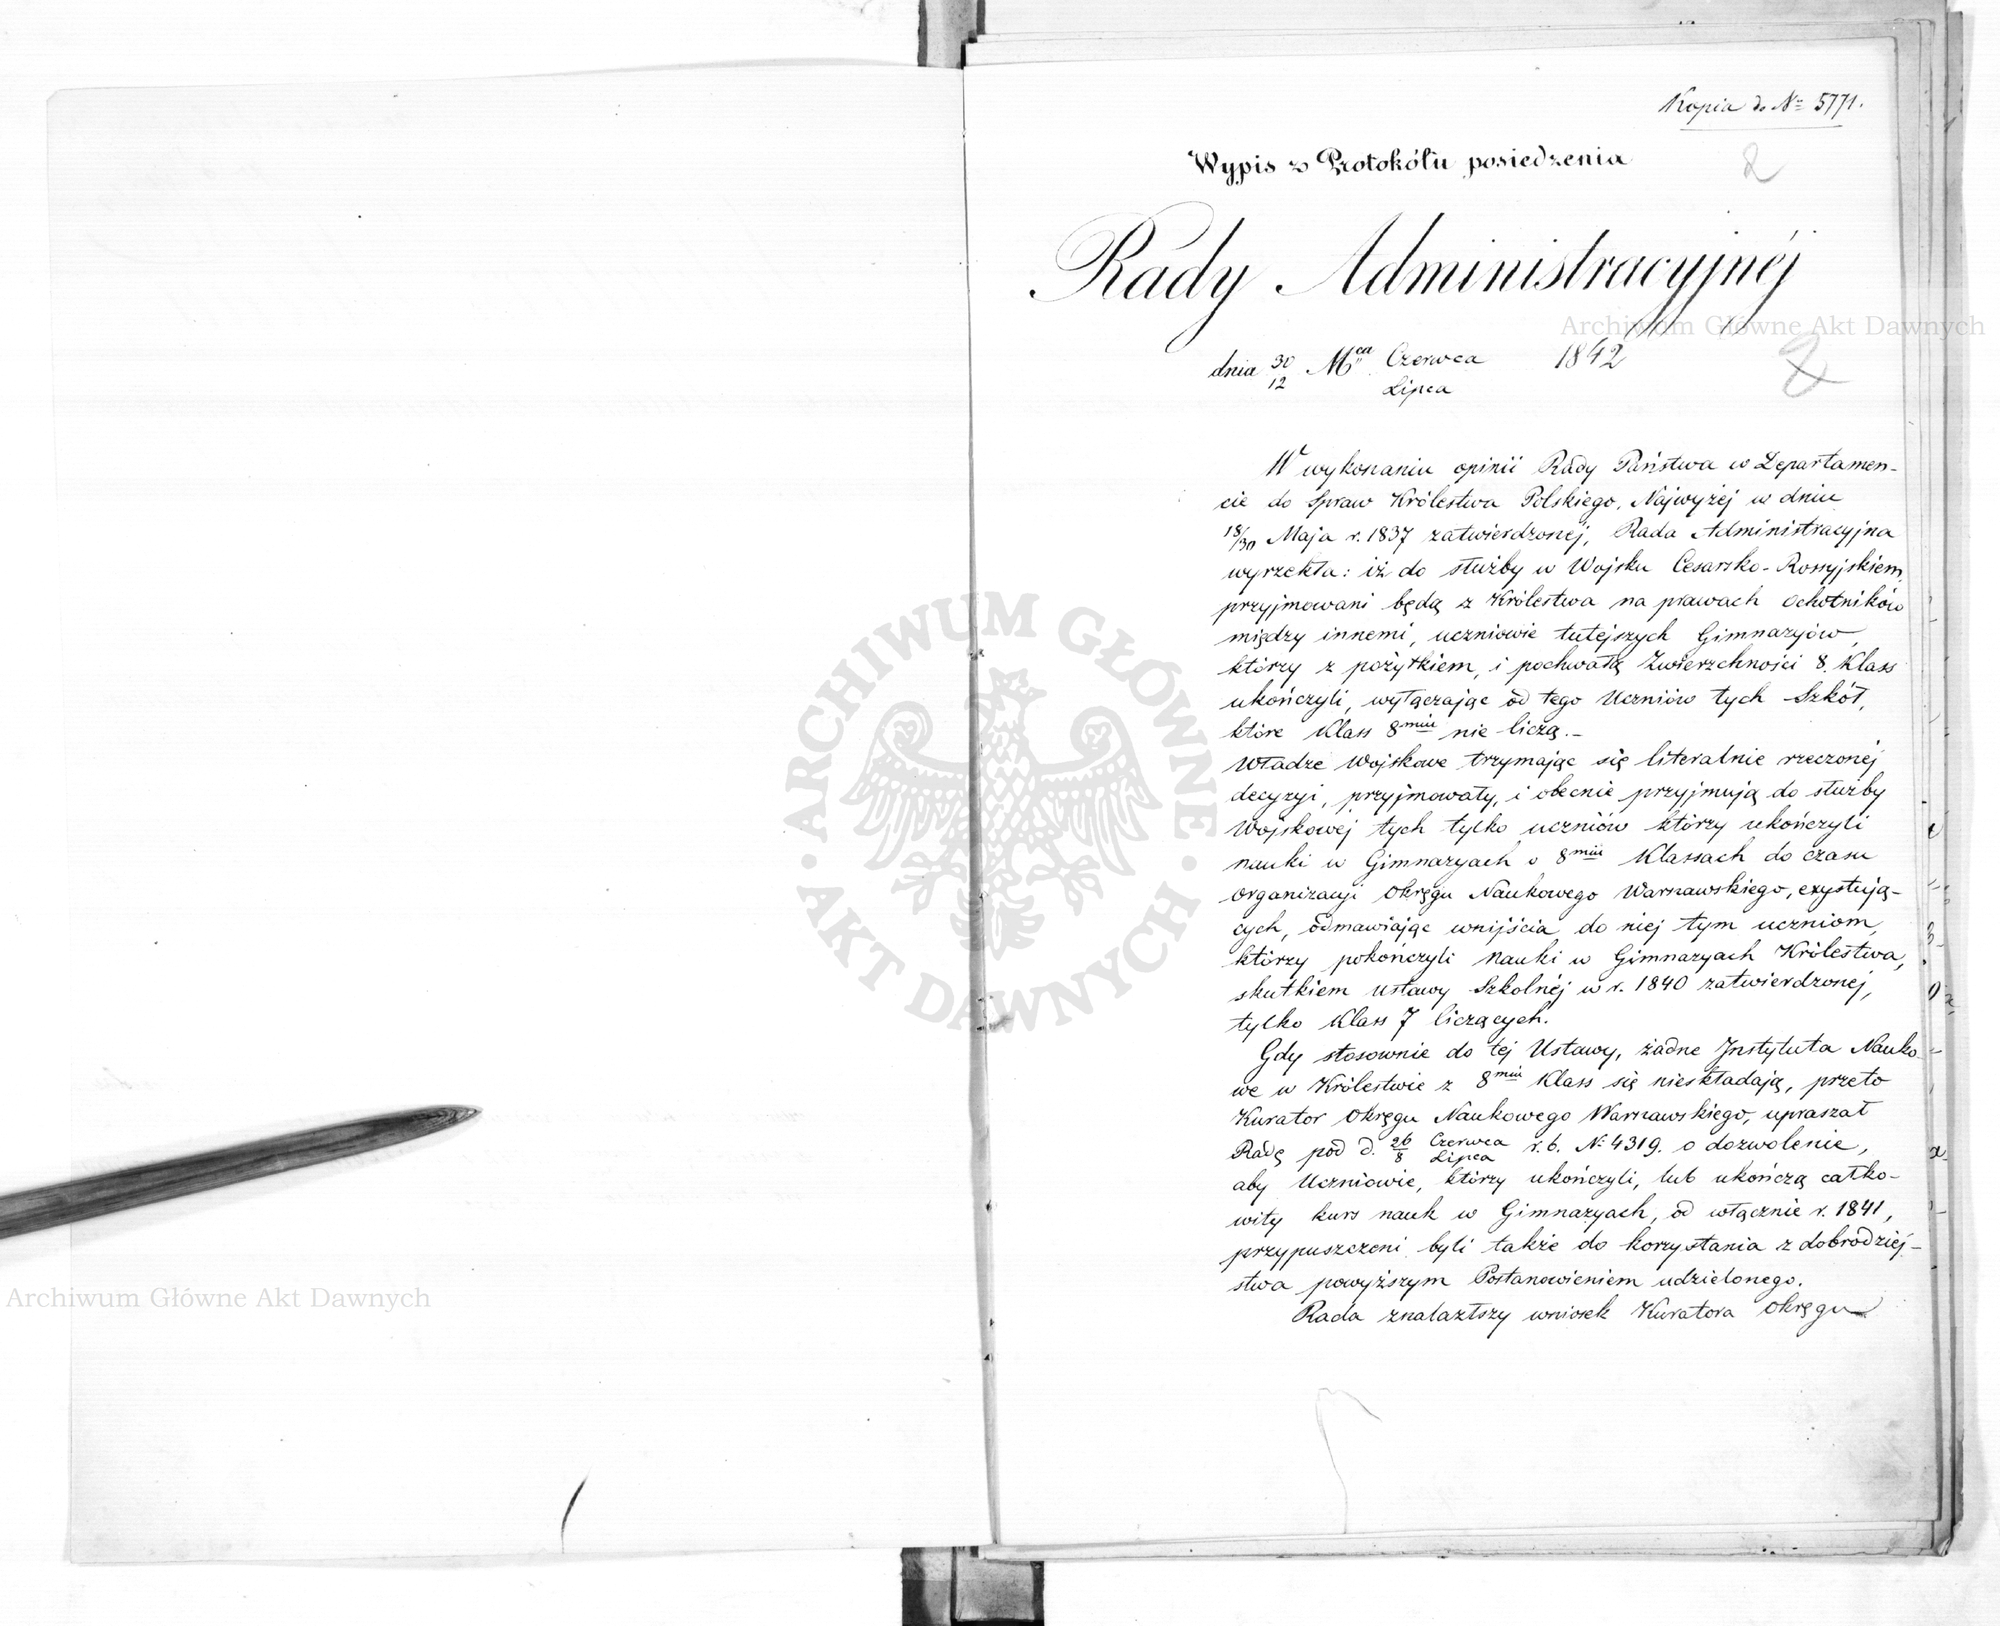 Kopia do Nr 5771.
Wypis z Protokółu posiedzenia
2
Rady Administracyjnéj
Archiwum Główne Akt Dawnych
dnia 30/12 Mca Czerwca/Lipca 1842
2
W wykonaniu opinii Rady Państwa w Departamen-
cie do Spraw Królestwa Polskiego, Najwyżej w dniu
18/30 Maja r. 1837 zatwierdzonej, Rada Administracyjna
wyrzekła: iż do służby w Wojsku Cesarsko-Rossyjskiem,
przyjmowani będą z Królestwa na prawach Ochotników
między innemi, uczniowie tutejszych Gimnazyów,
którzy z pożytkiem, i pochwałą Zwierzchności 8. Klass
ukończyli, wyłączając od tego Uczniów tych Szkół,
które Klass 8miu nie liczą.-
Władze Wojskowe trzymając się literalnie rzeczonej
decyzyi, przyjmowały, i obecnie przyjmują do służby
Wojskowej tych tylko uczniów którzy ukończyli
nauki w Gimnazyach o 8miu Klassach do czasu
Organizacyi Okręgu Naukowego Warszawskiego, exystują-
cych, odmawiając wnijścia do niej tym uczniom,
którzy pokończyli Nauki w Gimnazyach Królestwa,
skutkiem Ustawy Szkolnéj w r. 1840 zatwierdzonej,
tylko Klass 7 liczących.
Gdy stosownie do tej Ustawy, żadne Instytuta Nauko-
we w Królestwie z 8miu Klass się nieskładają, przeto
Kurator Okręgu Naukowego Warszawskiego, upraszał
Radę pod d. 26/8 Czerwca/Lipca r. b. Nr 4319. o dozwolenie,
aby Uczniowie, którzy ukończyli, lub ukończą całko-
wity kurs nauk w Gimnazyach, od włącznie r. 1841,
przypuszczeni byli także do korzystania z dobrodziej-
stwa powyższym Postanowieniem udzielonego.
Rada znalazłszy wniosek Kuratora Okręgu
ARCHIWUM GŁÓWNE AKT DAWNYCH
Archiwum Główne Akt Dawnych